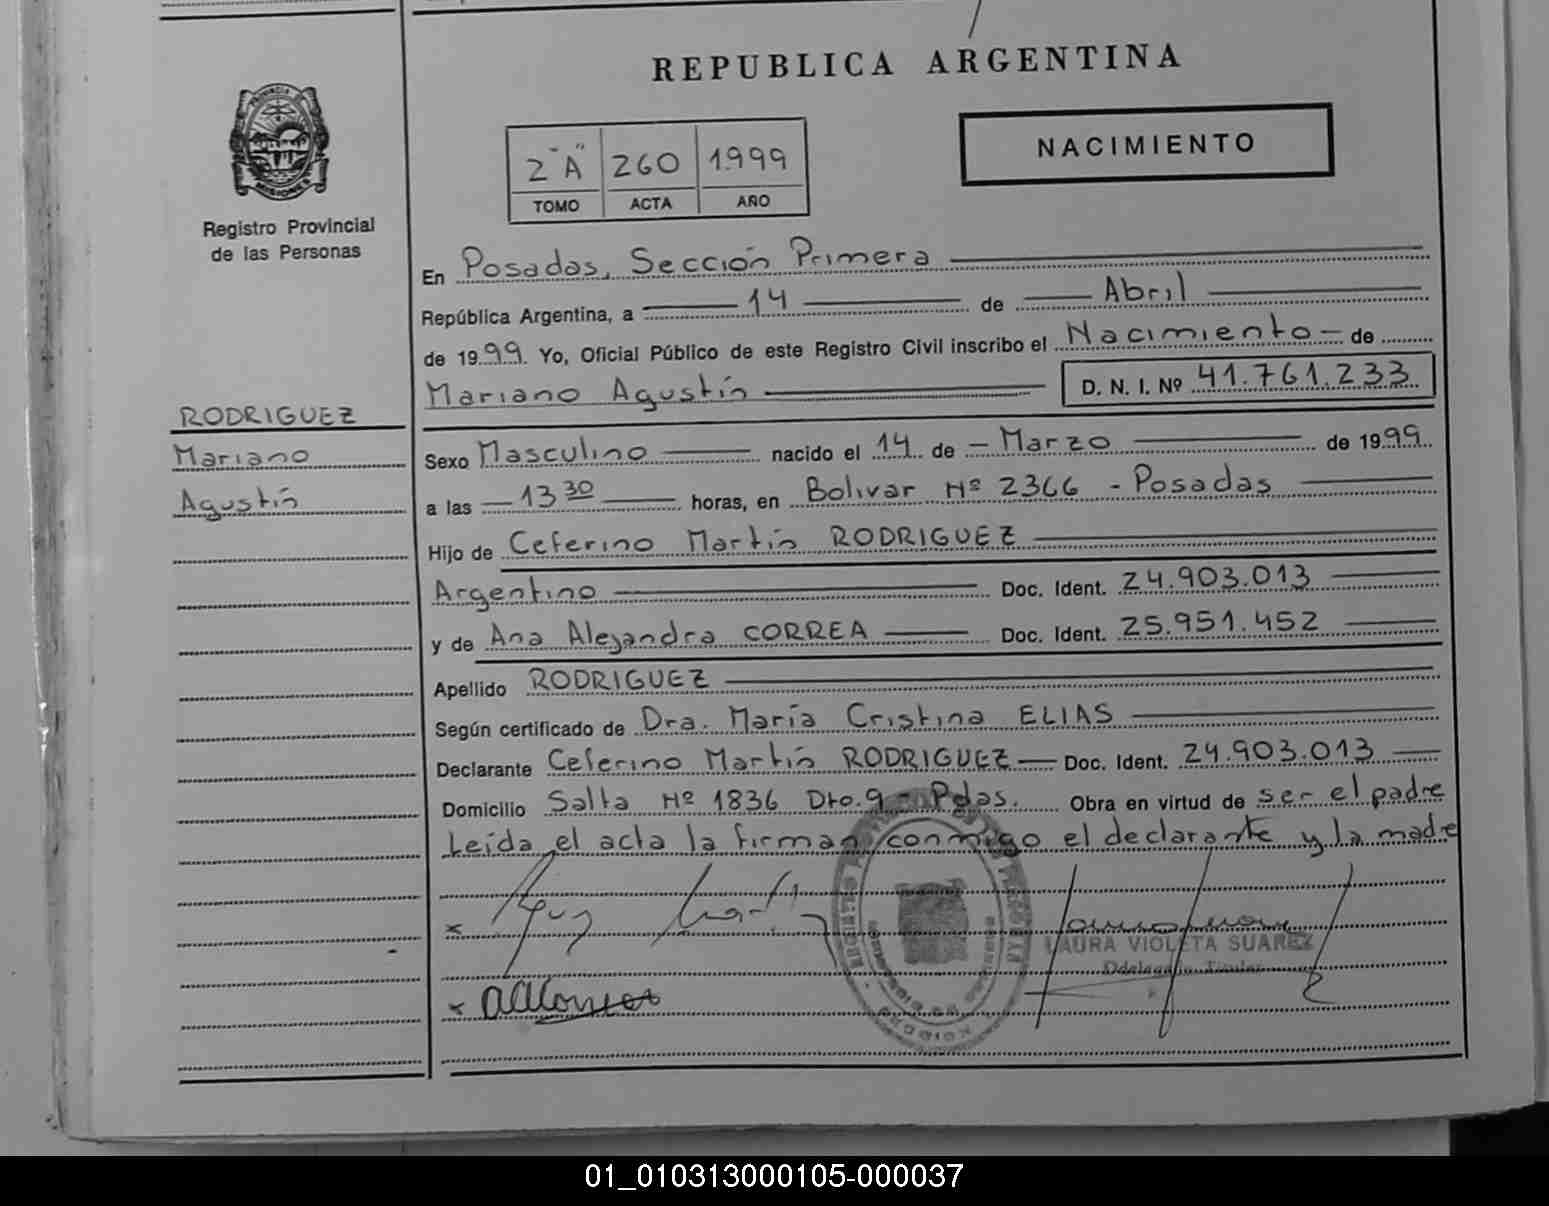 REPUBLICA ARGENTINA
NACIMIENTO
2 "A" 260 1.999
TOMO ACTA AÑO
Registro Provincial
de las Personas
En Posadas, Sección Primera
República Argentina, a 14 de Abril
de 1999. Yo, Oficial Público de este Registro Civil inscribo el Nacimiento de
Mariano Agustín D. N. I. Nº 41.761.233
RODRIGUEZ
Mariano
Agustín
Sexo Masculino nacido el 14 de Marzo de 1999
a las 13 30 horas, en Bolivar Nº 2366 - Posadas
Hijo de Ceferino Martín RODRIGUEZ
Argentino Doc. Ident. 24.903.013
y de Ana Alejandra CORREA Doc. Ident. 25.951.452
Apellido RODRIGUEZ
Según certificado de Dra. María Cristina ELIAS
Declarante Ceferino Martín RODRIGUEZ Doc. Ident. 24.903.013
Domicilio Salta Nº 1836 Dto. 9 - Pdas. Obra en virtud de ser el padre
Leída el acta la firman conmigo el declarante y la madre
LAURA VIOLETA SUAREZ
Titular
01_010313000105-000037